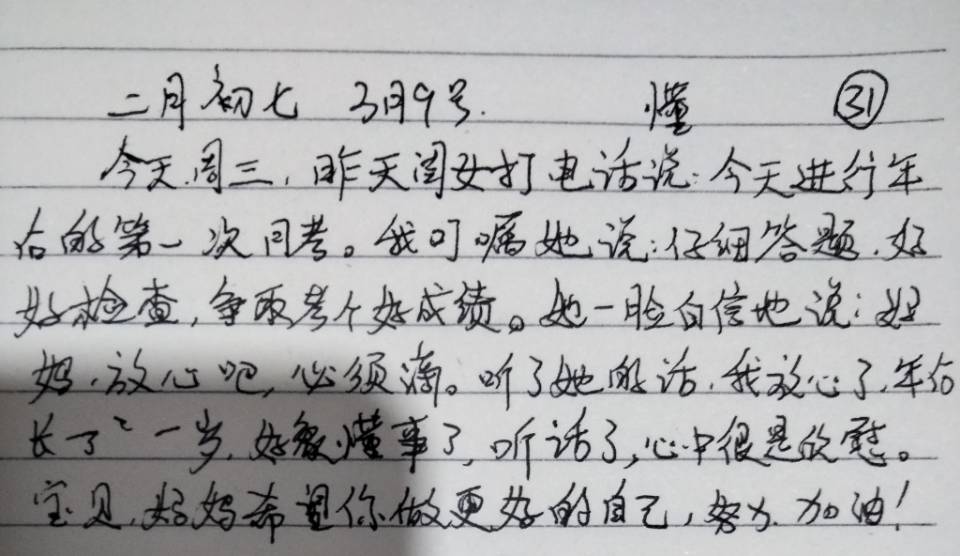 二月初七 3月9号. 懂 31
今天周三,昨天闺女打电话说:今天进行年
后的第一次月考。我叮嘱她说:仔细答题,好
好检查,争取考个好成绩。她一脸自信地说:妈
妈,放心吧,必须滴。听了她的话,我放心了,年后
长了一岁,好像懂事了,听话了,心中很是欣慰。
宝贝,妈妈希望你做更好的自己,努力加油!